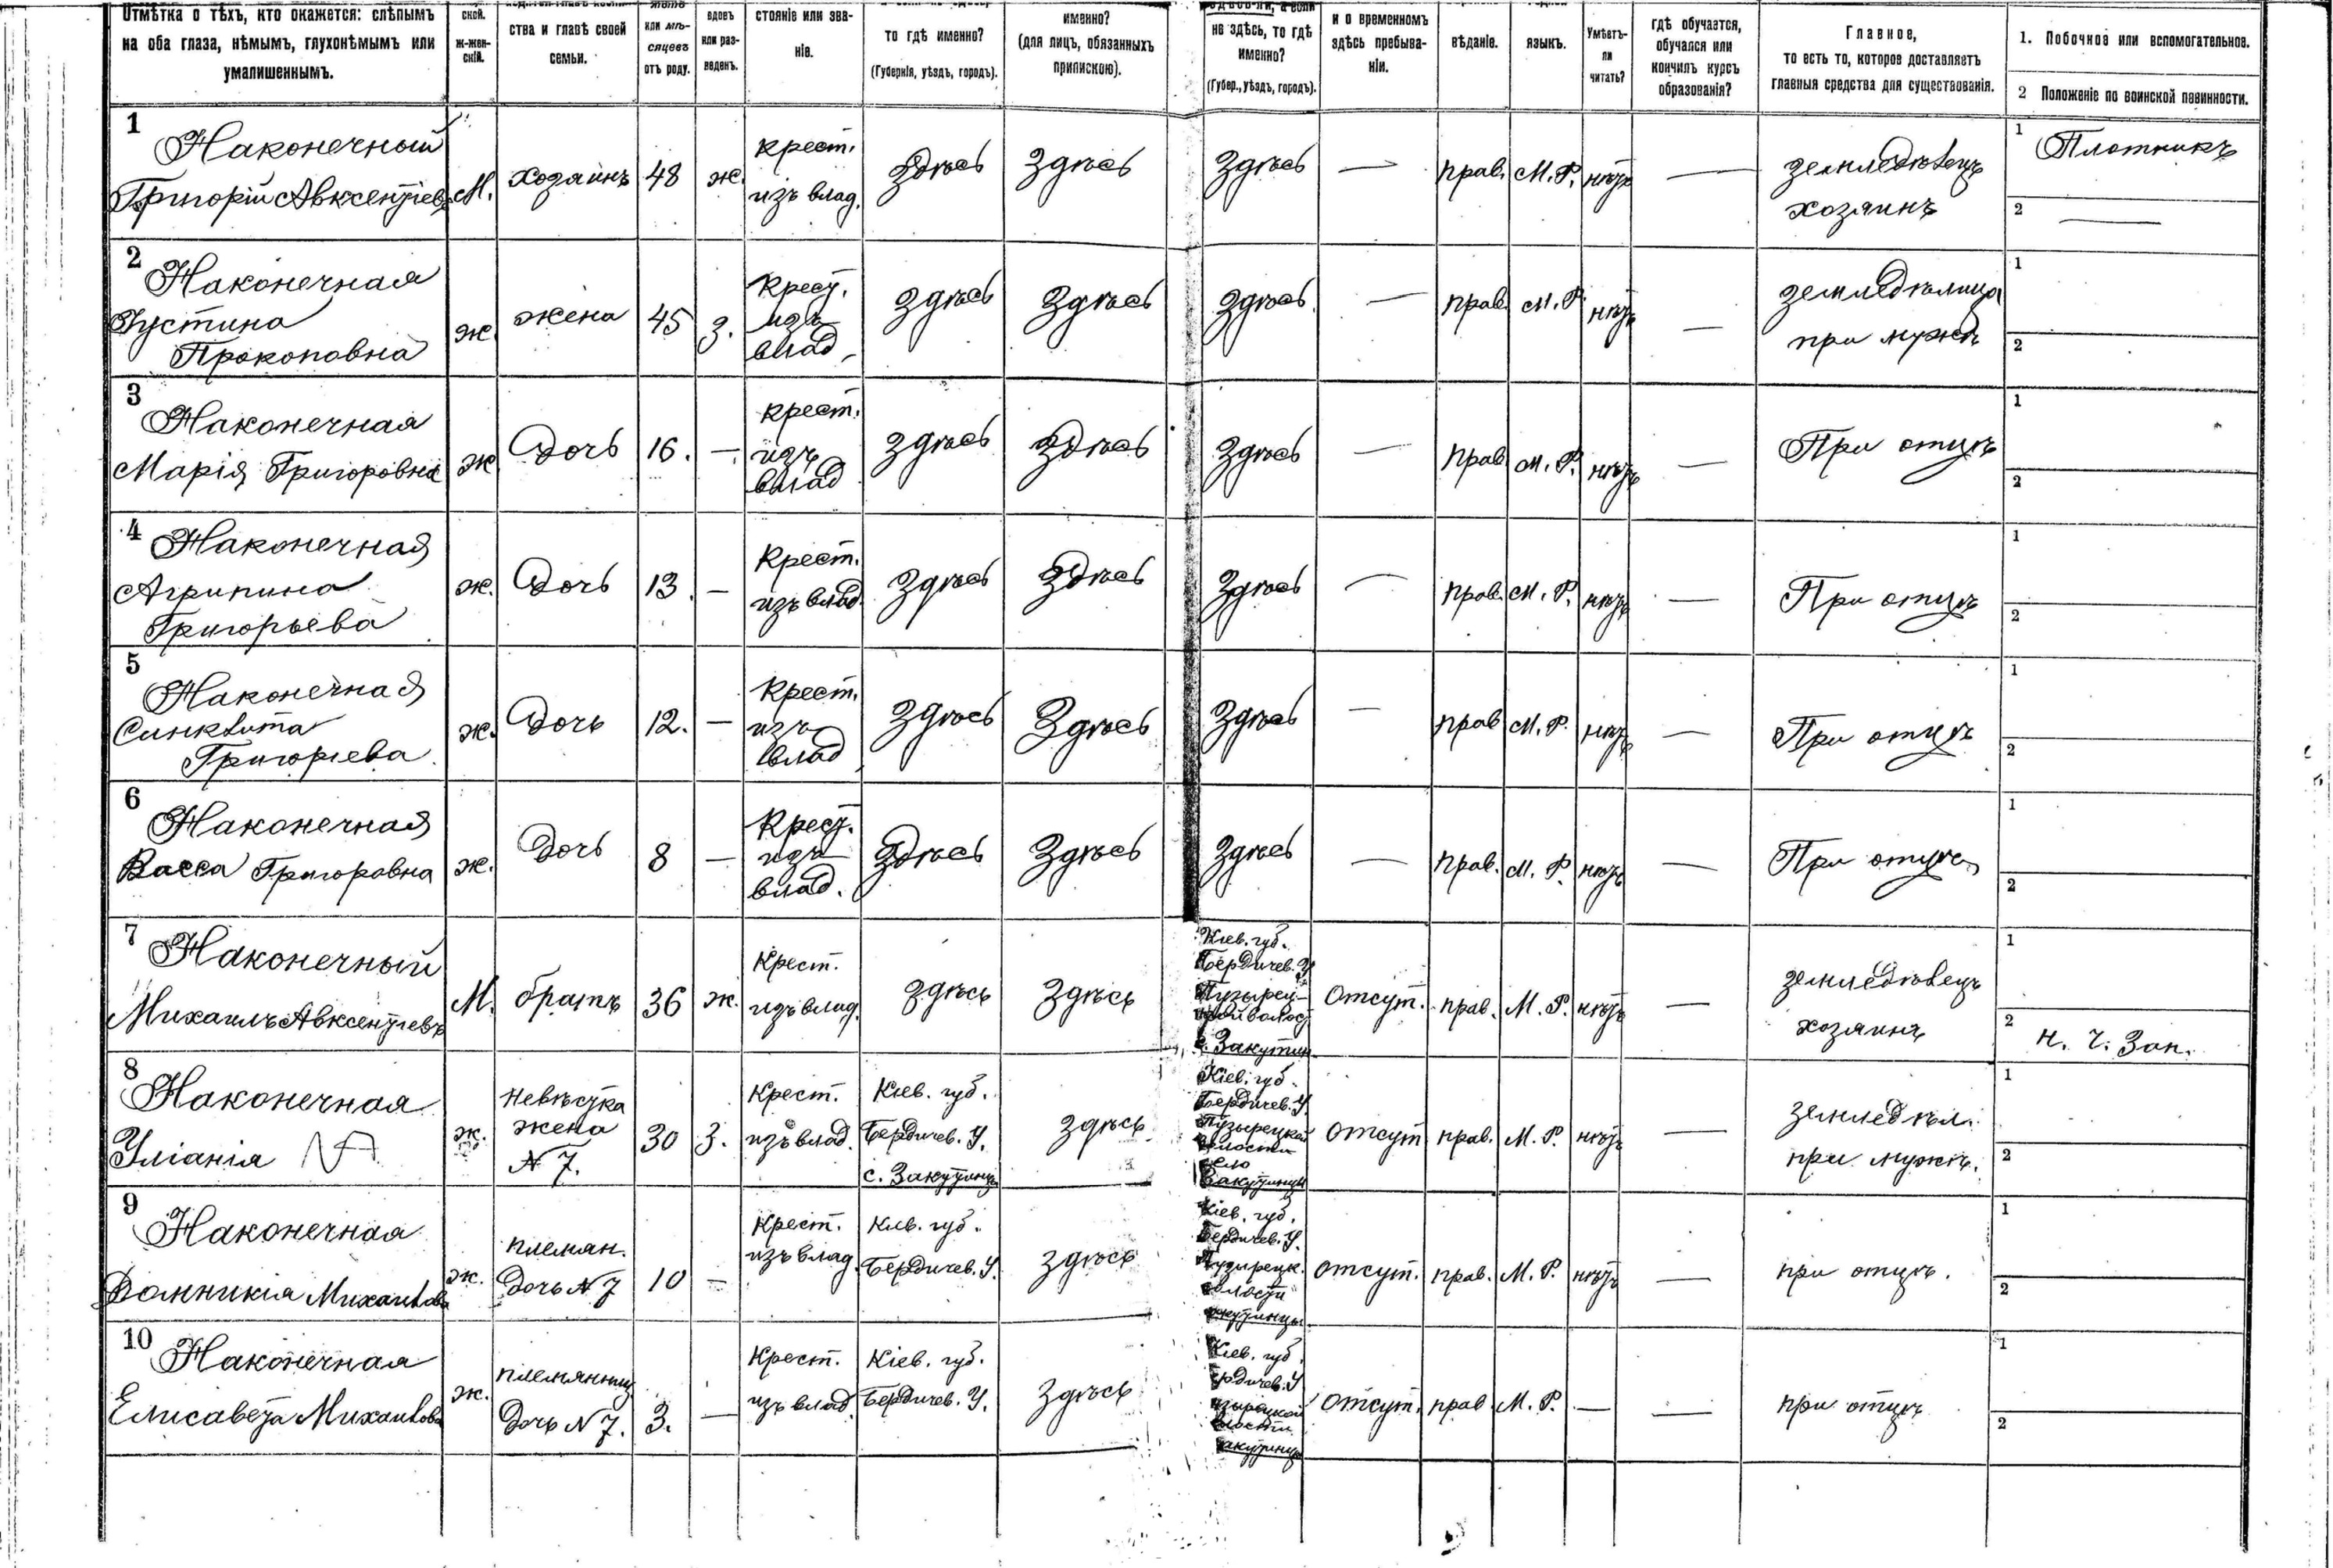 Отмѣтка о тѣхъ, кто окажется: слѣпымъ
на оба глаза, нѣмымъ, глухонѣмымъ или
умалишеннымъ.
ской.
ж-жен-
скій.
ства и главѣ своей
семьи.
или мѣ-
сяцевъ
отъ роду.
вдовъ
или раз-
веденъ.
стояніе или зва-
ніе.
то гдѣ именно?
(Губернія, уѣздъ, городъ).
именно?
(для лицъ, обязанныхъ
припискою).
не здѣсь, то гдѣ
именно?
(Губер., уѣздъ, городъ).
и о временномъ
здѣсь пребыва-
ніи.
вѣданіе.
языкъ.
Умѣетъ-
ли
читать?
гдѣ обучается,
обучался или
кончилъ курсъ
образованія?
Главное,
то есть то, которое доставляетъ
главныя средства для существованія.
1. Побочное или вспомогательное.
2 Положеніе по воинской повинности.
1
Наконечный
Григорій Авксентіевъ
М.
хозяинъ
48
ж.
крест.
изъ влад.
Здѣсь
Здѣсь
Здѣсь
—
прав.
М. Р.
нѣтъ
—
земледѣлецъ
хозяинъ
1 Плотникъ
2 —
2
Наконечная
Устина
Прокоповна
ж.
жена
45
з.
Крест.
изъ
влад.
Здѣсь
Здѣсь
Здѣсь
—
прав.
М. Р.
нѣтъ
—
земледѣлица
при мужѣ
1
2
3
Наконечная
Марія Григоровна
ж
Дочь
16.
—
крест.
изъ
влад
Здѣсь
Здѣсь
Здѣсь
—
прав
М. Р.
нѣтъ
—
При отцѣ
1
2
4
Наконечная
Агрипина
Григорьева
ж.
Дочь
13.
—
Крест.
изъ влад.
Здѣсь
Здѣсь
Здѣсь
—
прав.
М. Р.
нѣтъ
—
При отцѣ
1
2
5
Наконечная
Синклита
Григоріева
ж.
Дочь
12.
—
Крест.
изъ
влад
Здѣсь
Здѣсь
Здѣсь
—
прав
М. Р.
нѣтъ
—
При отцѣ
1
2
6
Наконечная
Васса Григоровна
ж.
Дочь
8
—
Крест.
изъ
влад.
Здѣсь
Здѣсь
Здѣсь
—
прав.
М. Р.
нѣтъ
—
При отцѣ
1
2
7
Наконечный
Михаилъ Авксентіевъ
М.
братъ
36
ж.
Крест.
изъ влад.
Здѣсь
Здѣсь
Кіев. губ.
Бердичев. У
Пузырец-
кой волост
с. Закутин
Отсут.
прав.
М. Р.
нѣтъ
—
земледѣлецъ
хозяинъ
1
2 н. ч. Зап.
8
Наконечная
Уліанія
ж.
невѣстка
жена
N 7.
30
З.
Крест.
изъ влад.
Кіев. губ.
Бердичев. У.
с. Закутинцы
Здѣсь
Кіев. губ.
Бердичев. У.
Пузырецкой
волости
село
Закутинцы
отсут
прав.
М. Р.
нѣтъ
—
земледѣл.
при мужѣ.
1
2
9
Наконечная
Домникія Михаилова
ж.
племян.
Дочь N 7
10
—
Крест.
изъ влад.
Кіев. губ.
Бердичев. У.
Здѣсь
Кіев. губ.
Бердичев. У.
Пузырецк.
волости
акутинцы
отсут.
прав.
М. Р.
нѣтъ
—
при отцѣ.
1
2
10
Наконечная
Елисавета Михаилова
ж.
племянниц
Дочь N 7.
3.
—
Крест.
изъ влад.
Кіев. губ.
Бердичев. У.
Здѣсь
Кіев. губ.
ердичев. У
узырецкой
волости
акутинцы
отсут.
прав
М. Р.
—
—
при отцѣ
1
2